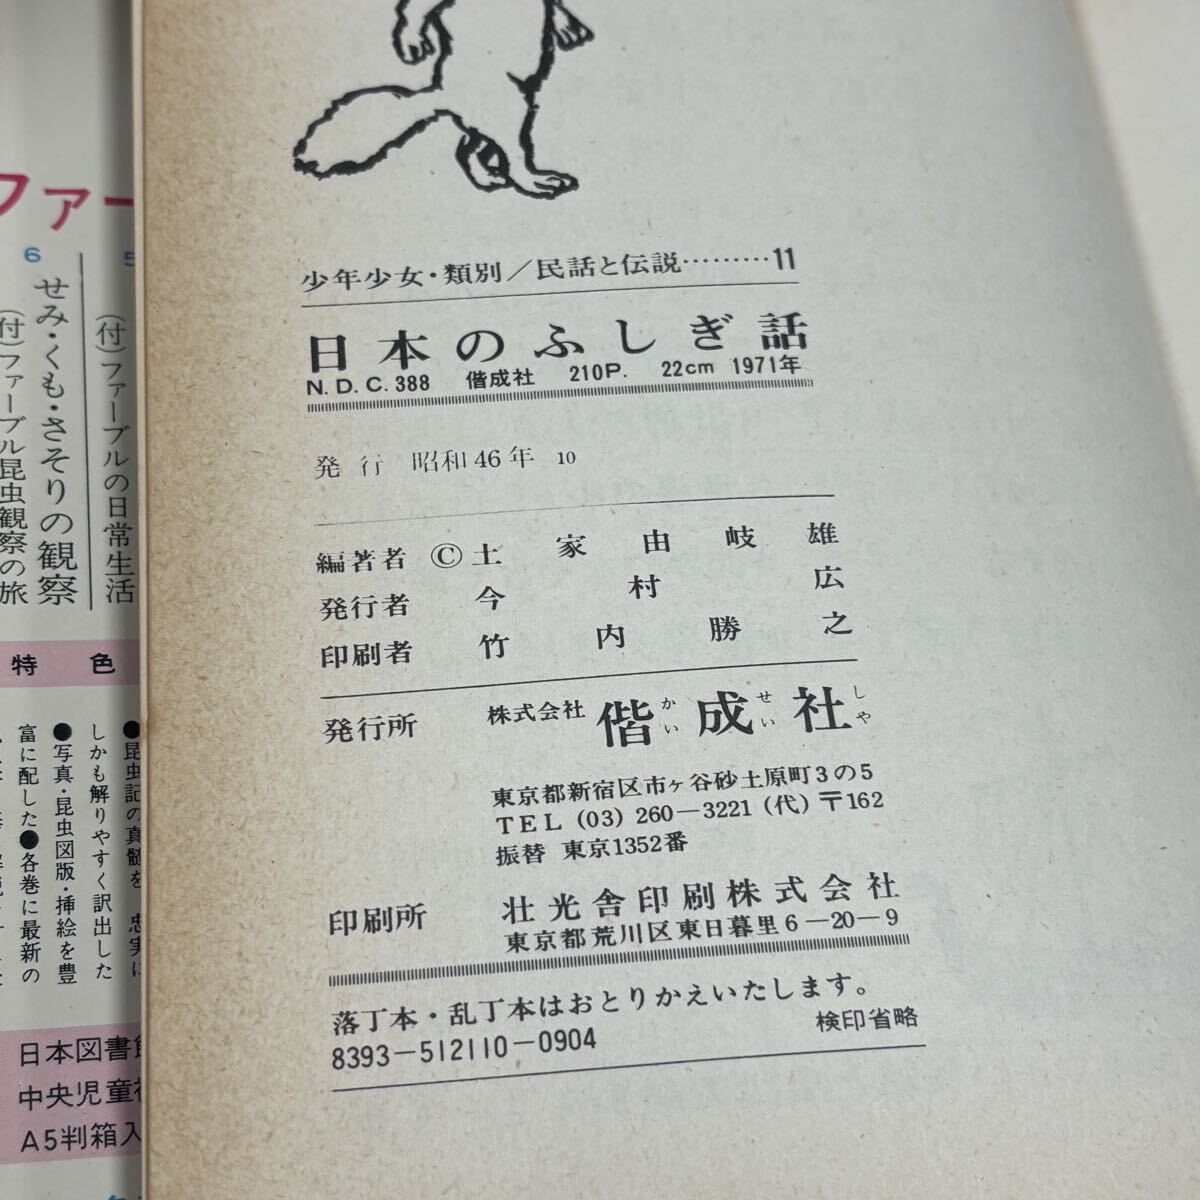 少年少女・類別／民話と伝説………11
日本のふしぎ話
N.D.C.388 偕成社 210P. 22cm 1971年
発行 昭和46年 10
編著者 Ⓒ土家由岐雄
発行者 今村広
印刷者 竹内勝之
発行所 株式会社 偕成社
かいせいしゃ
東京都新宿区市ヶ谷砂土原町3の5
TEL (03) 260―3221 (代) 〒162
振替 東京1352番
印刷所 壮光舎印刷株式会社
東京都荒川区東日暮里6―20―9
落丁本・乱丁本はおとりかえいたします。
検印省略
8393―512110―0904
ファー
5
(付)ファーブルの日常生活
6
せみ・くも・さそりの観察
(付)ファーブル昆虫観察の旅
特色
●昆虫記の真髄を 忠実に
しかも解りやすく訳出した
●写真・昆虫図版・挿絵を豊
富に配した●各巻に最新の
日本図書館
中央児童
A5判箱入